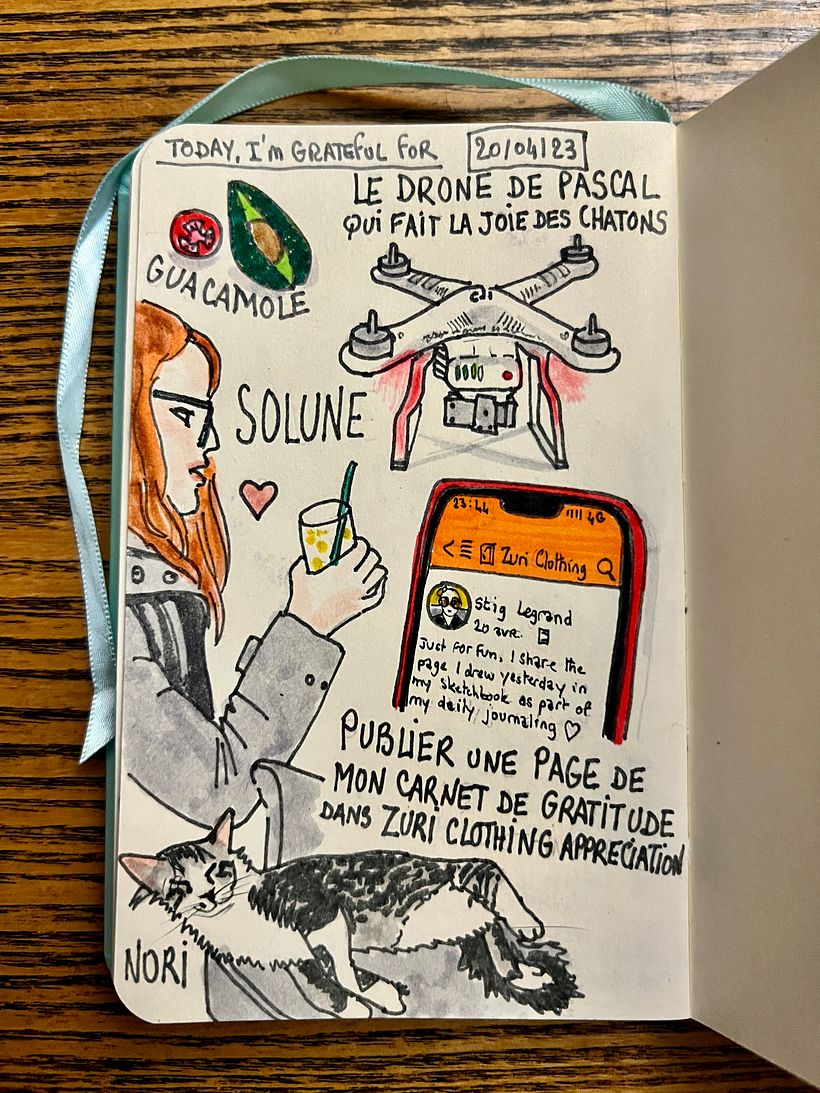 TODAY, I'm GRATEFUL FOR
20/04/23
LE DRONE DE PASCAL
QUI FAIT LA JOIE DES CHATONS
GUACAMOLE
SOLUNE
23:44
4G
Zuri Clothing
Stig Legrand
20 avr.
Just for fun, I share the
page I drew yesterday in
my sketchbook as part of
my daily journaling ♡
PUBLIER UNE PAGE DE
MON CARNET DE GRATITUDE
DANS ZURI CLOTHING APPRECIATION
NORI